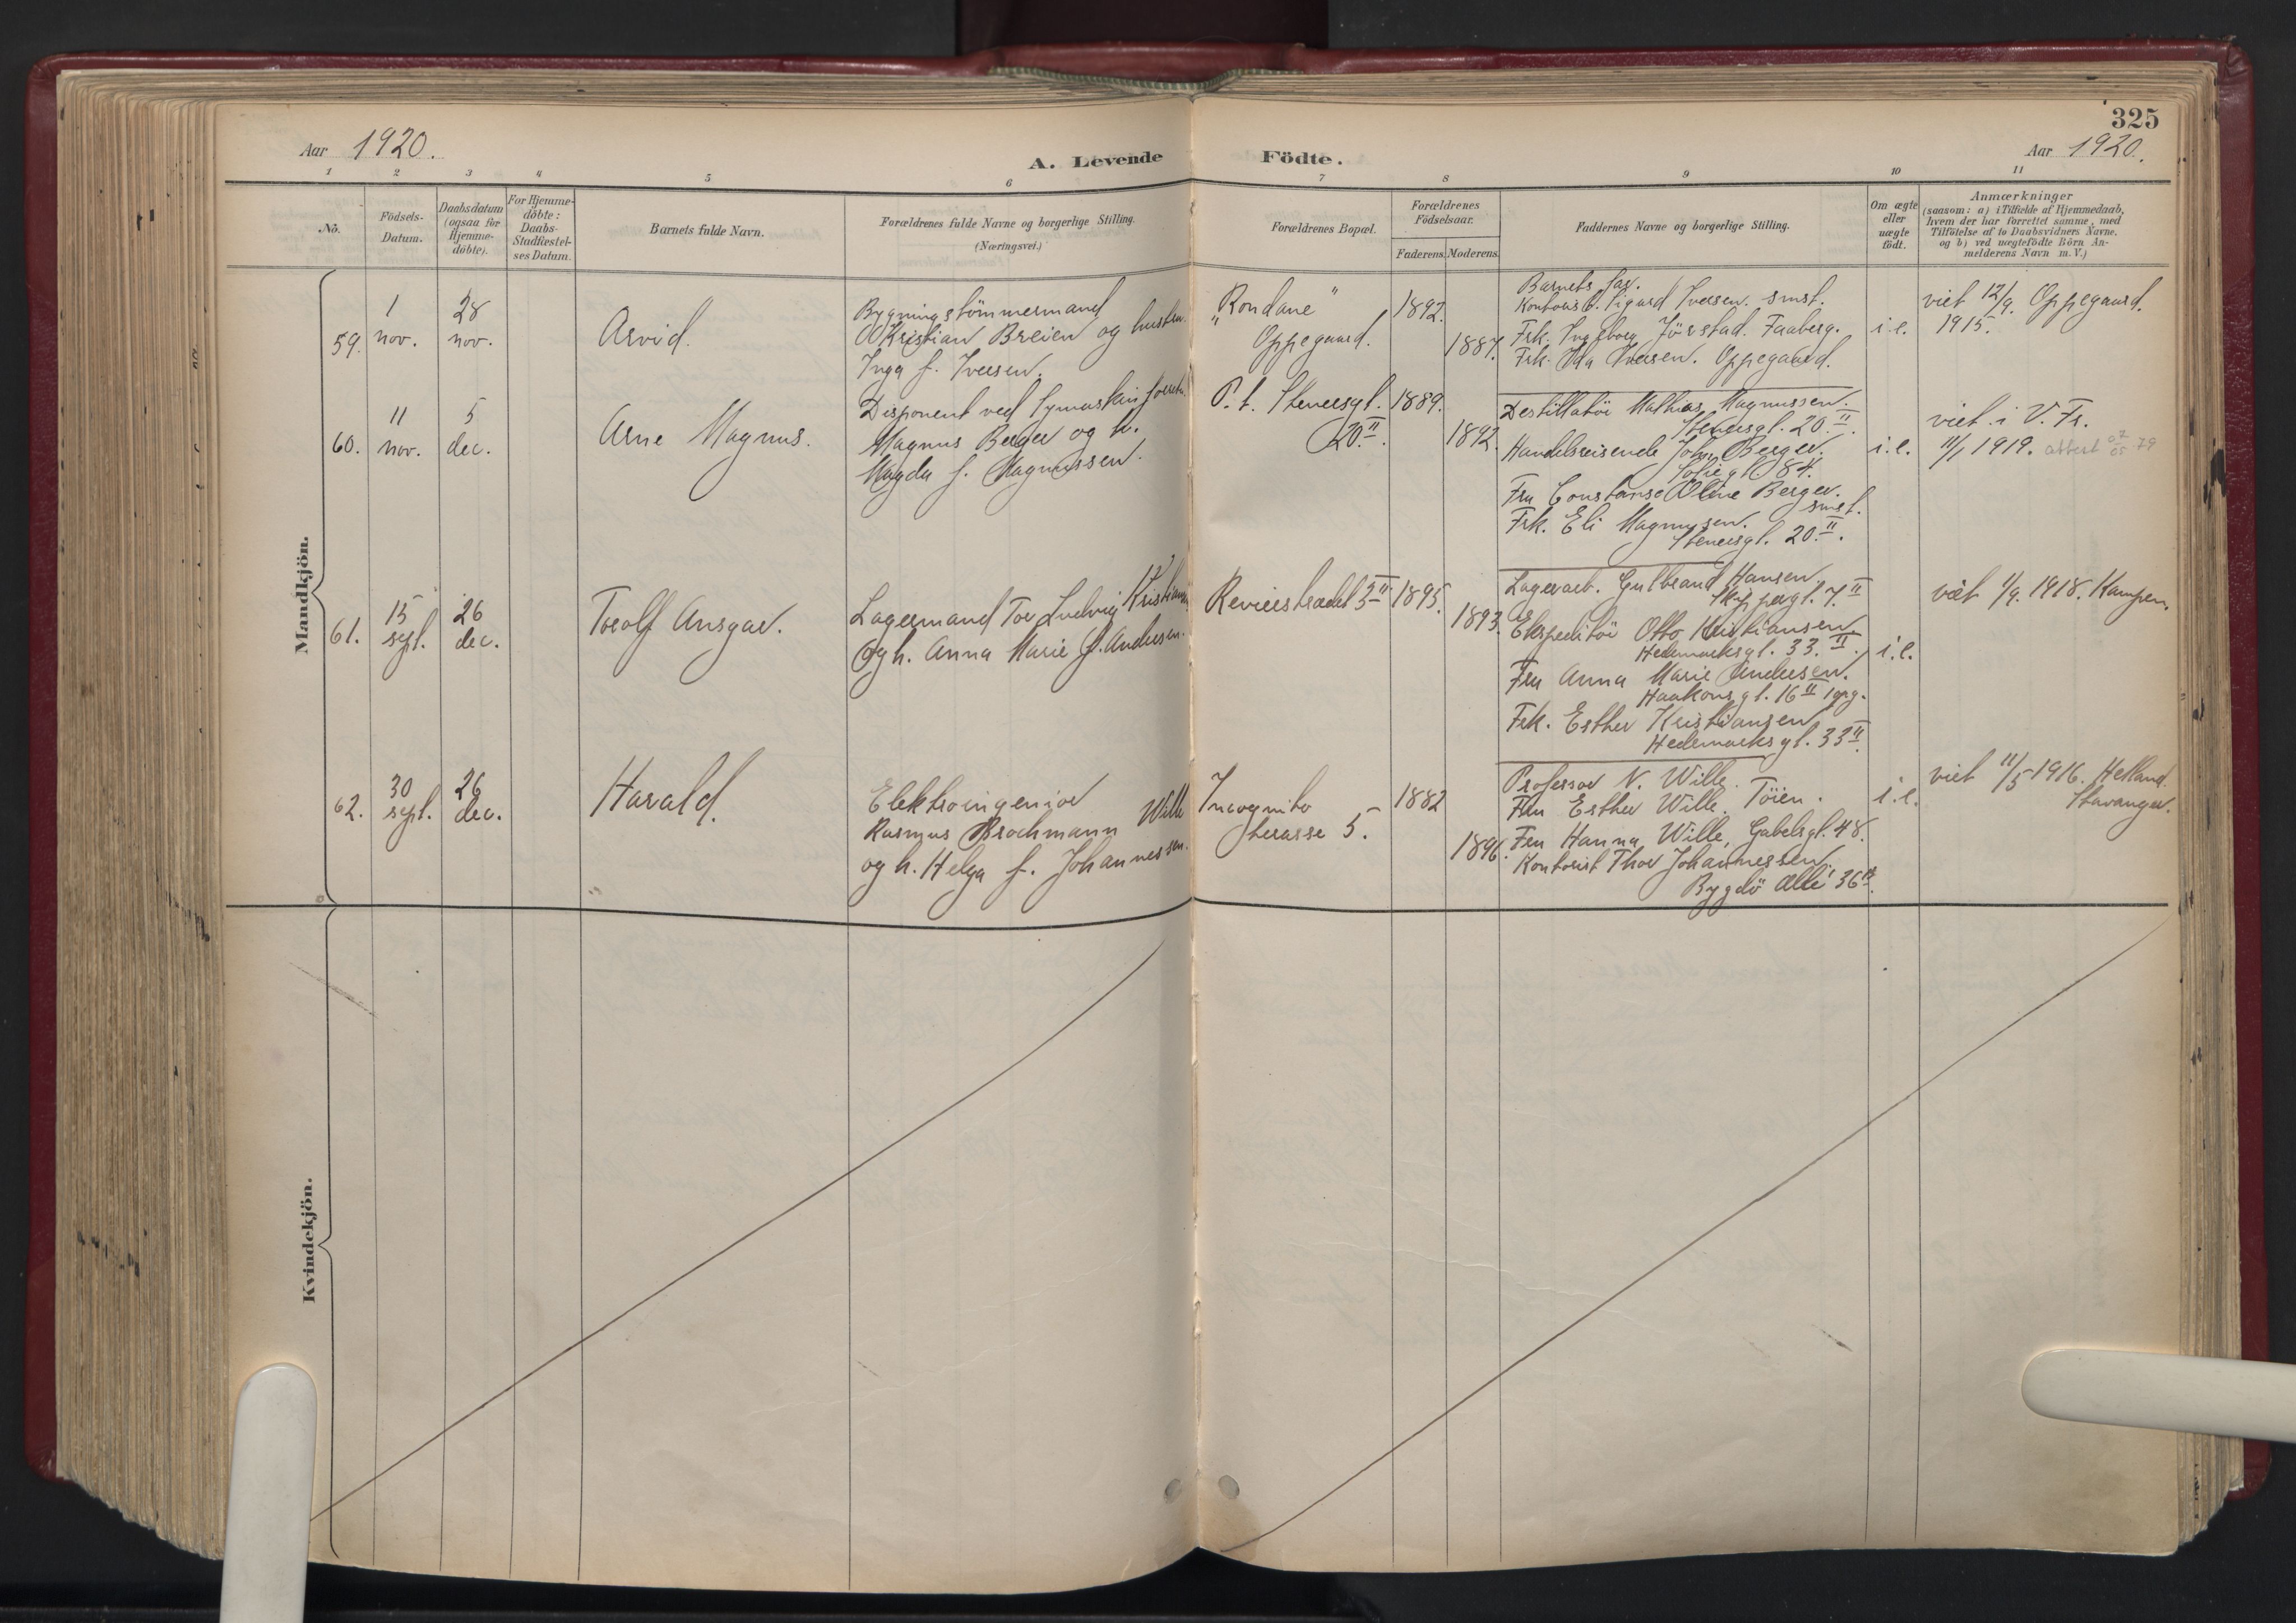 325
Aar 1920.
A. Levende Födte.
Aar 1920.
1 2 3 4 5 6 7 8 9 10 11
No.
Födsels-
Datum.
Daabsdatum
(ogsaa for
Hjemme-
döbte).
For Hjemme-
döbte:
Daabs-
Stadfæstel-
ses Datum.
Barnets fulde Navn.
Forældrenes fulde Navne og borgerlige Stilling.
(Næringsvei.)
Forældrenes Bopæl.
Forældrenes
Födselsaar.
Faderens. Moderens.
Faddernes Navne og borgerlige Stilling.
Om ægte
eller
uægte
födt.
Anmærkninger
(saasom: a) i Tilfælde af Hjemmedaab,
hvem der har forrettet samme, med
Tilföielse af to Daabsvidners Navne.
og b) ved uægtefödte Börn An-
melderens Navn m. V.)
Mandkjön.
59.
1
nov.
28
nov.
Arvid.
Bygningstömmermand
Kristian Breien og hustru
Inga f. Iversen.
"Rondane"
Oppegaard.
1892.
1887.
Barnets far.
Kontorist Sigurd Iversen. smst.
Frk. Ingeborg Jörstad. Faaberg.
Frk. Ida Iversen. Oppegaard.
i.e.
viet 12/9 Oppegaard.
1915.
60.
11
nov.
5
dec.
Arne Magnus.
Disponent ved Symaskin forretn.
Magnus Berger og h.
Magda f. Magnussen.
P. t. Stenersgt.
20 II.
1889.
1892.
Destillatör Mathias Magnussen.
Stenersgt. 20 II.
Handelsreisende John Berger.
Sofiegt. 84.
Fru Constanse Oline Berger.
smst.
Frk. Eli Magnussen.
Stenersgt. 20 II.
i.e.
viet i V. Fr.
11/1 1919. attest 79
61.
15
sept.
26
dec.
Torolf Ansgar.
Lagermand Tor Ludvig Kristiansen
og h. Anna Marie f. Andersen.
Revierstrædet 3 II
1895.
1893.
Lagerarb. Gulbrand Hansen.
Skippergt. 7 II
Ekspeditör Otto Kristiansen
Hedemarksgt. 33 II.
Fru Anna Marie Andersen.
Haakonsgt. 16 II opg.
Frk. Esther Kristiansen
Hedemarksgt. 33 II.
i.e.
viet 1/9. 1918. Kampen.
62.
30
sept.
26
dec.
Harald.
Elektroingeniör
Rasmus Brochmann Wille
og h. Helga f. Johannessen.
Incognito
terasse 5.
1882
1896.
Professor N. Wille.
Fru Esther Wille. Töien.
Fru Hanna Wille, Gabelsgt. 48.
Kontorist Thor Johannessen.
Bygdö Allé 36 II.
i.e.
viet 11/5 1916. Hetland
Stavanger.
Kvindekjön.